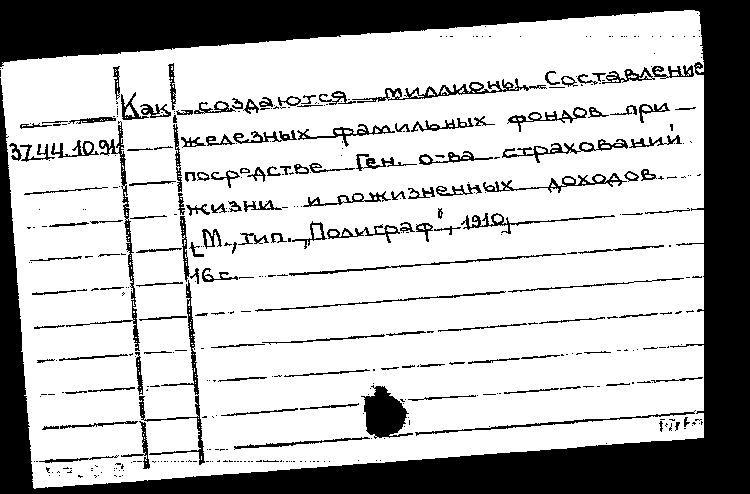 Как создаются миллионы. Составление
37.44.10.91 железных фамильных фондов при
посредстве Ген. о-ва страхований
жизни и пожизненных доходов.
[М., тип. „Полиграф", 1910]
16 с.